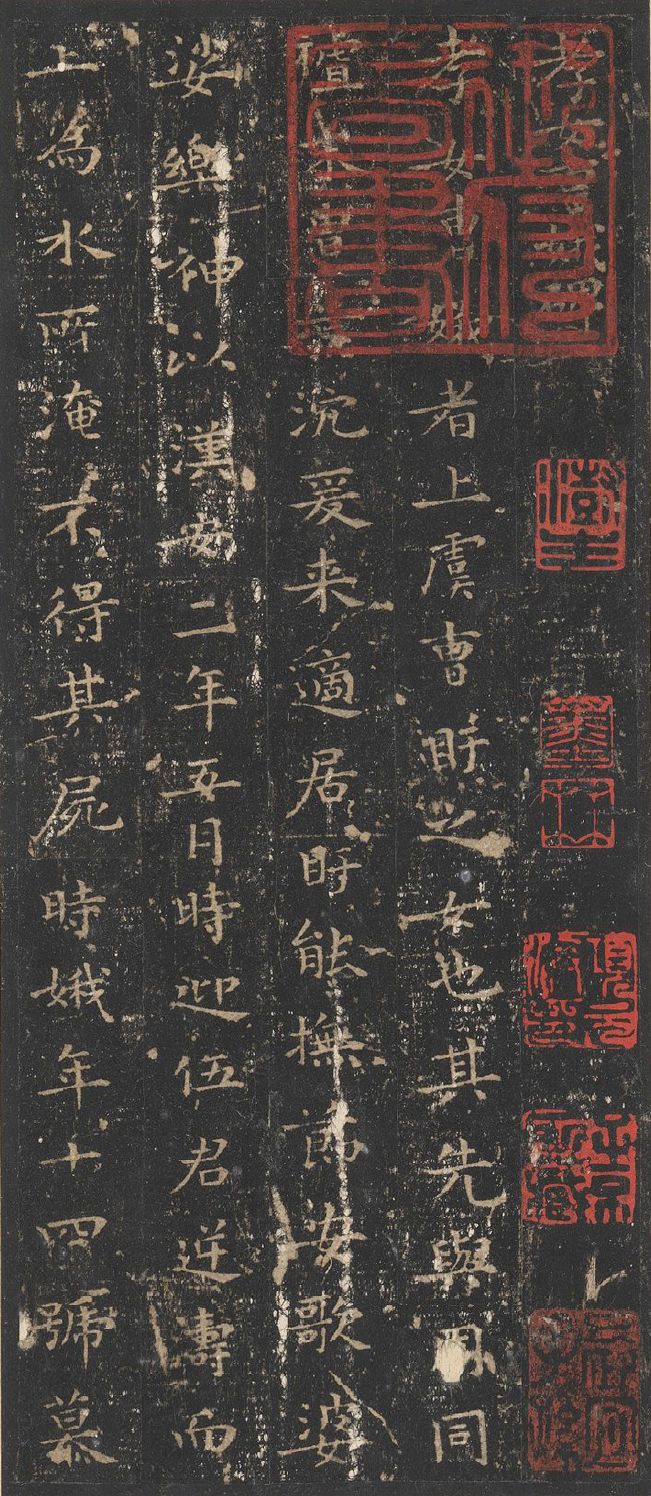 孝女曹娥碑
孝女曹娥者上虞曹盱之女也其先與周同
沉爰来適居盱能撫節安歌婆
娑樂神以漢安二年五月時迎伍君逆濤而
上為水所淹不得其屍時娥年十四號慕
墨林